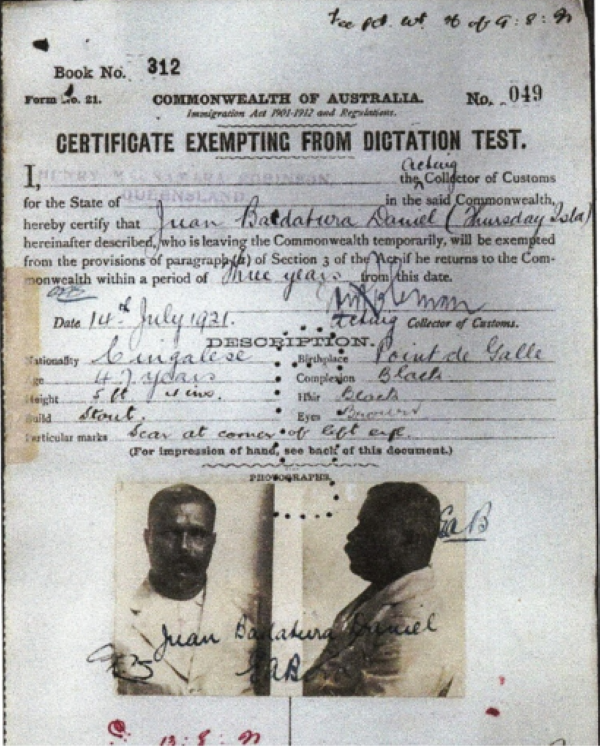 of 9 : 8 : 21
Book No. 312
Form No. 21. COMMONWEALTH OF AUSTRALIA. No. 049
Immigration Act 1901-1912 and Regulations.
CERTIFICATE EXEMPTING FROM DICTATION TEST.
HENRY ROBINSON
Acting
I, the Collector of Customs
QUEENSLAND
for the State of in the said Commonwealth,
hereby certify that Juan Badatura Daniel (Thursday Isld)
hereinafter described, who is leaving the Commonwealth temporarily, will be exempted
from the provisions of paragraph (a) of Section 3 of the Act if he returns to the Com-
monwealth within a period of three years from this date.
Date 14th July 1921. Acting Collector of Customs.
DESCRIPTION.
Nationality Cingalese Birthplace Point de Galle
Age 47 years Complexion Black
Height 5 ft 4 ins. Hair Black
Build Stout. Eyes Brown
Particular marks Scar at corner of left eye.
(For impression of hand, see back of this document.)
PHOTOGRAPHS.
Juan Badatura Daniel
13 : 8 : 21